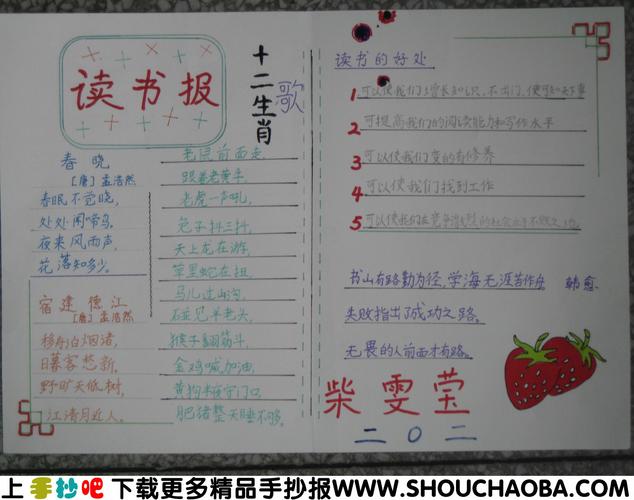 读书报
春晓
[唐]孟浩然
春眠不觉晓,
处处闻啼鸟。
夜来风雨声,
花落知多少。
宿建德江
[唐]孟浩然
移舟泊烟渚,
日暮客愁新。
野旷天低树,
江清月近人。
十二生肖歌
老鼠前面走,
跟着老黄牛
老虎一声吼,
兔子抖三抖,
天上龙在游,
草里蛇在扭
马儿过山沟,
碰见羊老头,
猴子翻筋斗,
金鸡喊加油,
黄狗来夜守门口,
肥猪整天睡不够。
读书的好处
1 可以使我们增长知识,不出门,便可知天下事
2 可提高我们的阅读能力和写作水平
3 可以使我们变的有修养
4 可以使我们找到工作
5 可以使我们在竞争激烈的社会立于不败之地。
书山有路勤为径,学海无涯苦作舟 韩愈
失败指出了成功之路。
无畏的人前面才有路。
柴雯莹
二〇二
上手抄吧 下载更多精品手抄报WWW.SHOUCHAOBA.COM